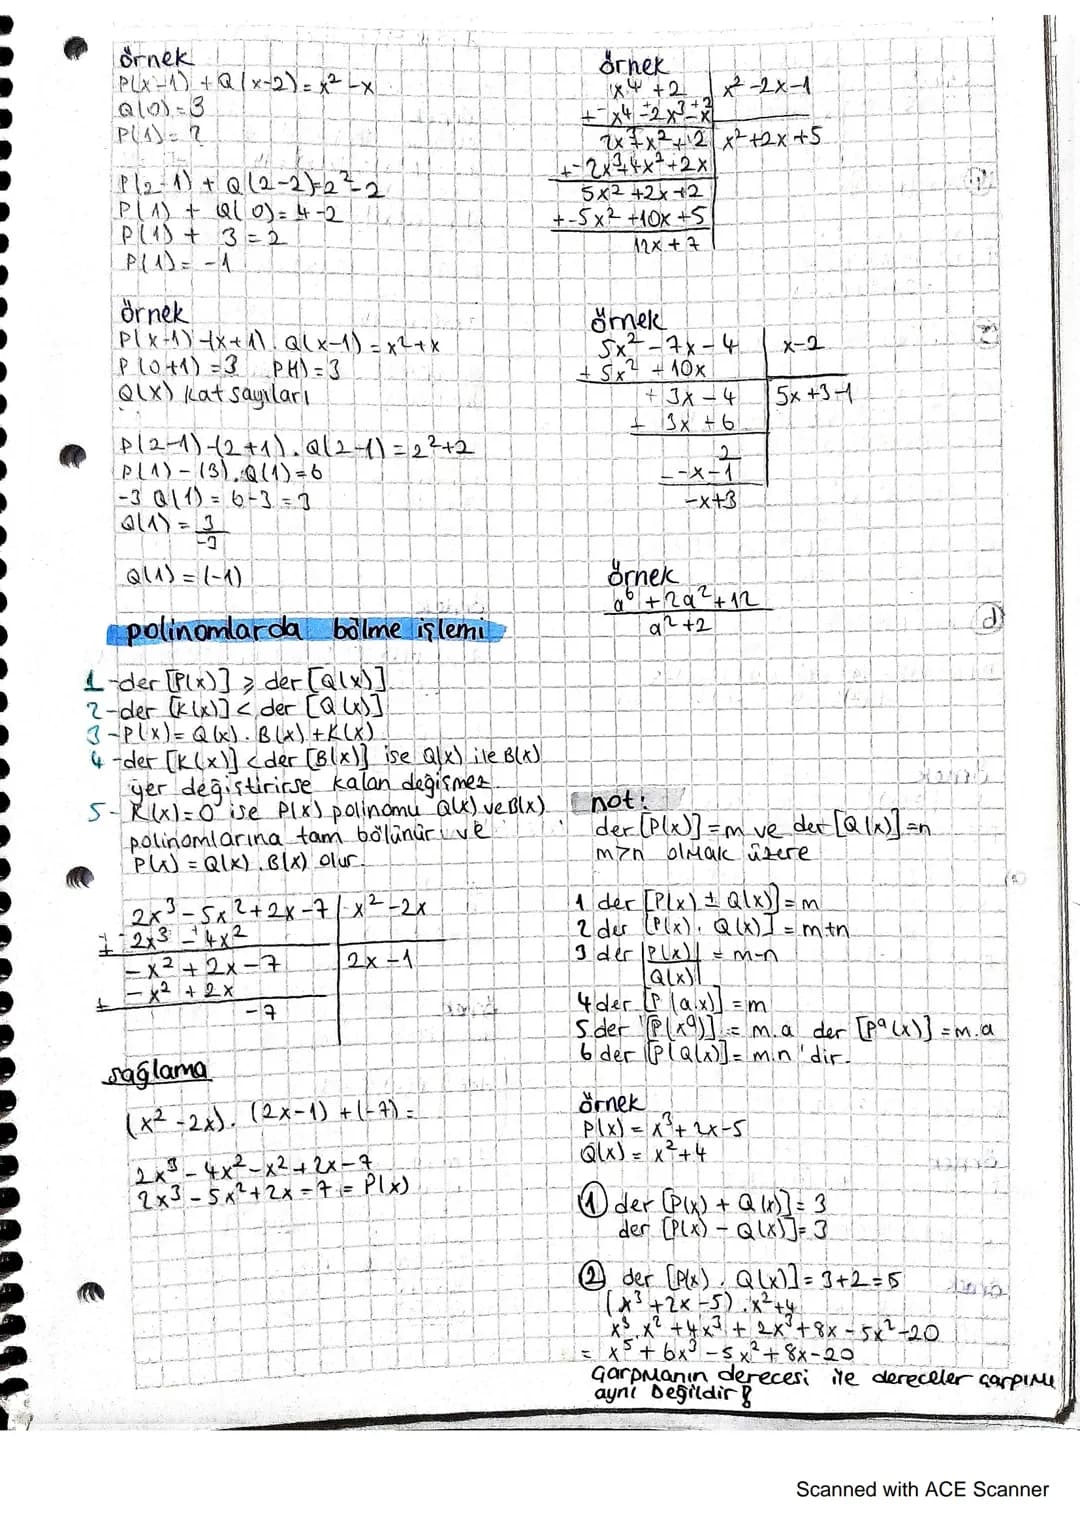 örnek
P(x-1) + Q(x-2) = x² - x
Q(0) = 3
P(1) = ?
P(2-1) + Q(2-2) = 2² - 2
P(1) + Q(0) = 4-2
P(1) + 3 = 2
P(1) = -1
örnek
P(x-1) -(x+1). Q(x-1) = x²+x
P(0+1) = 3 P(1) = 3
Q(x) kat sayıları
P(2-1) -(2+1). Q(2-1) = 2²+2
P(1) - (3). Q(1) = 6
-3 Q(1) = 6-3 = 3
Q(1) = 3/-3
Q(1) = (-1)
polinomlarda bölme işlemi
1 -der [P(x)] ≥ der [Q(x)]
2 -der [K(x)] < der [Q(x)]
3 -P(x) = Q(x). B(x) + K(x)
4 -der [K(x)] < der [B(x)] ise Q(x) ile B(x)
yer değiştirirse kalan değişmez
5 - K(x)=0 ise P(x) polinomu Q(x) ve B(x)
polinomlarına tam bölünür ve
P(x) = Q(x). B(x) olur.
2x³ - 5x² + 2x - 7 | x² - 2x
2x³ - 4x²
-x² + 2x - 7 | 2x - 1
-x² + 2x
-7
sağlama
(x² - 2x). (2x-1) + (-7) =
2x³ - 4x² - x² + 2x - 7
2x³ - 5x² + 2x - 7 = P(x)
örnek
x⁴ + 2 | x² - 2x - 1
2x³ + x² + 2 | x² + 2x + 5
5x² + 2x + 2
+ -5x² + 10x + 5
12x + 7
örnek
5x² - 7x - 4 | x-2
+ 5x² + 10x
+ 3x - 4 | 5x + 3 - 1
+ 3x + 6
2
- -x-1
-x+3
örnek
a⁶ + 2a² + 12
a² + 2
not:
der [P(x)] = m ve der [Q(x)] = n
m>n olmak üzere
1 der [P(x) ± Q(x)] = m
2 der [P(x). Q(x)] = m+n
3 der [P(x)/Q(x)] = m-n
4 der [P(a.x)] = m
5. der [P(xᵃ)] = m.a der [Pᵃ(x)] = m.a
6 der [P(Q(x)] = m.n 'dir.
örnek
P(x) = x³ + 2x - 5
Q(x) = x² + 4
① der [P(x) + Q(x)] = 3
der [P(x) - Q(x)] = 3
② der [P(x). Q(x)] = 3+2 = 5
(x³ + 2x - 5). x² + 4
x³. x² + 4x³ + 2x³ + 8x - 5x² - 20
= x⁵ + 6x³ - 5x² + 8x - 20
Çarpmanın derecesi ile dereceler çarpımı
aynı Değildir!
Scanned with ACE Scanner